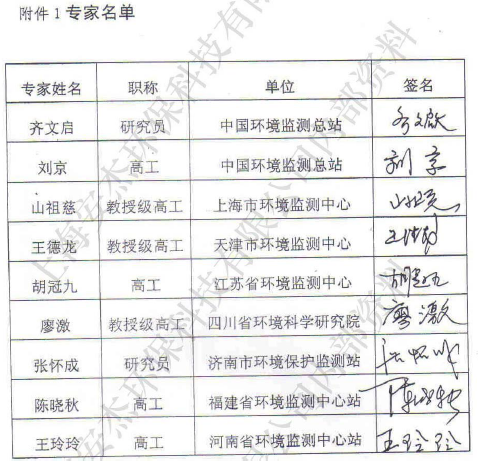 附件 1 专家名单
专家姓名 职称 单位 签名
齐文启 研究员 中国环境监测总站 齐文启
刘京 高工 中国环境监测总站 刘京
山祖慈 教授级高工 上海市环境监测中心 山祖慈
王德龙 教授级高工 天津市环境监测中心
胡冠九 高工 江苏省环境监测中心 胡冠九
廖激 教授级高工 四川省环境科学研究院 廖激
张怀成 研究员 济南市环境保护监测站 张怀成
陈晓秋 高工 福建省环境监测中心站 陈晓秋
王玲玲 高工 河南省环境监测中心站 王玲玲
上海安杰环保科技有限公司内部资料